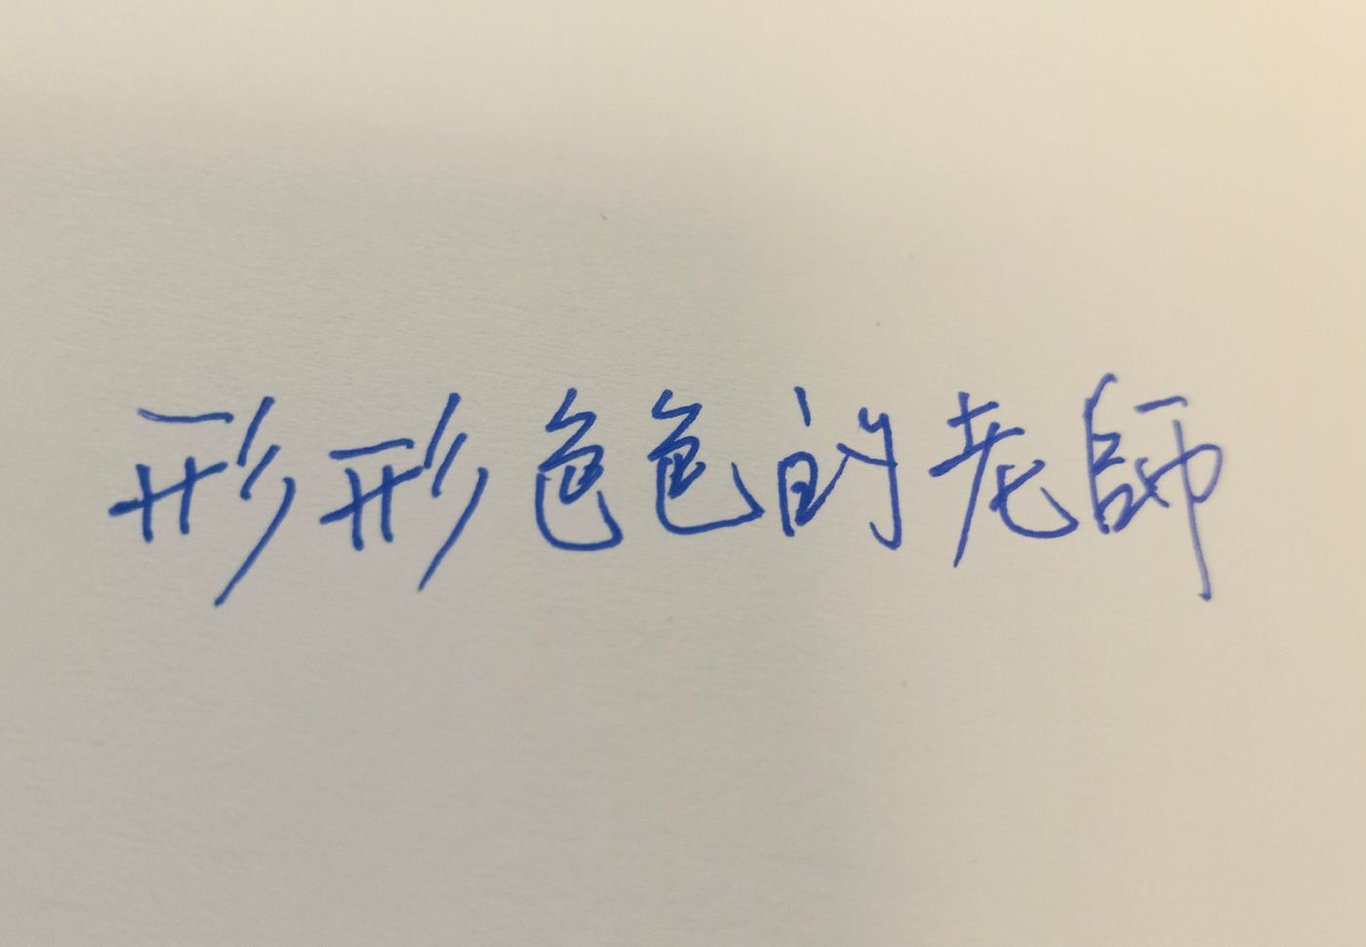 形形色色的老師